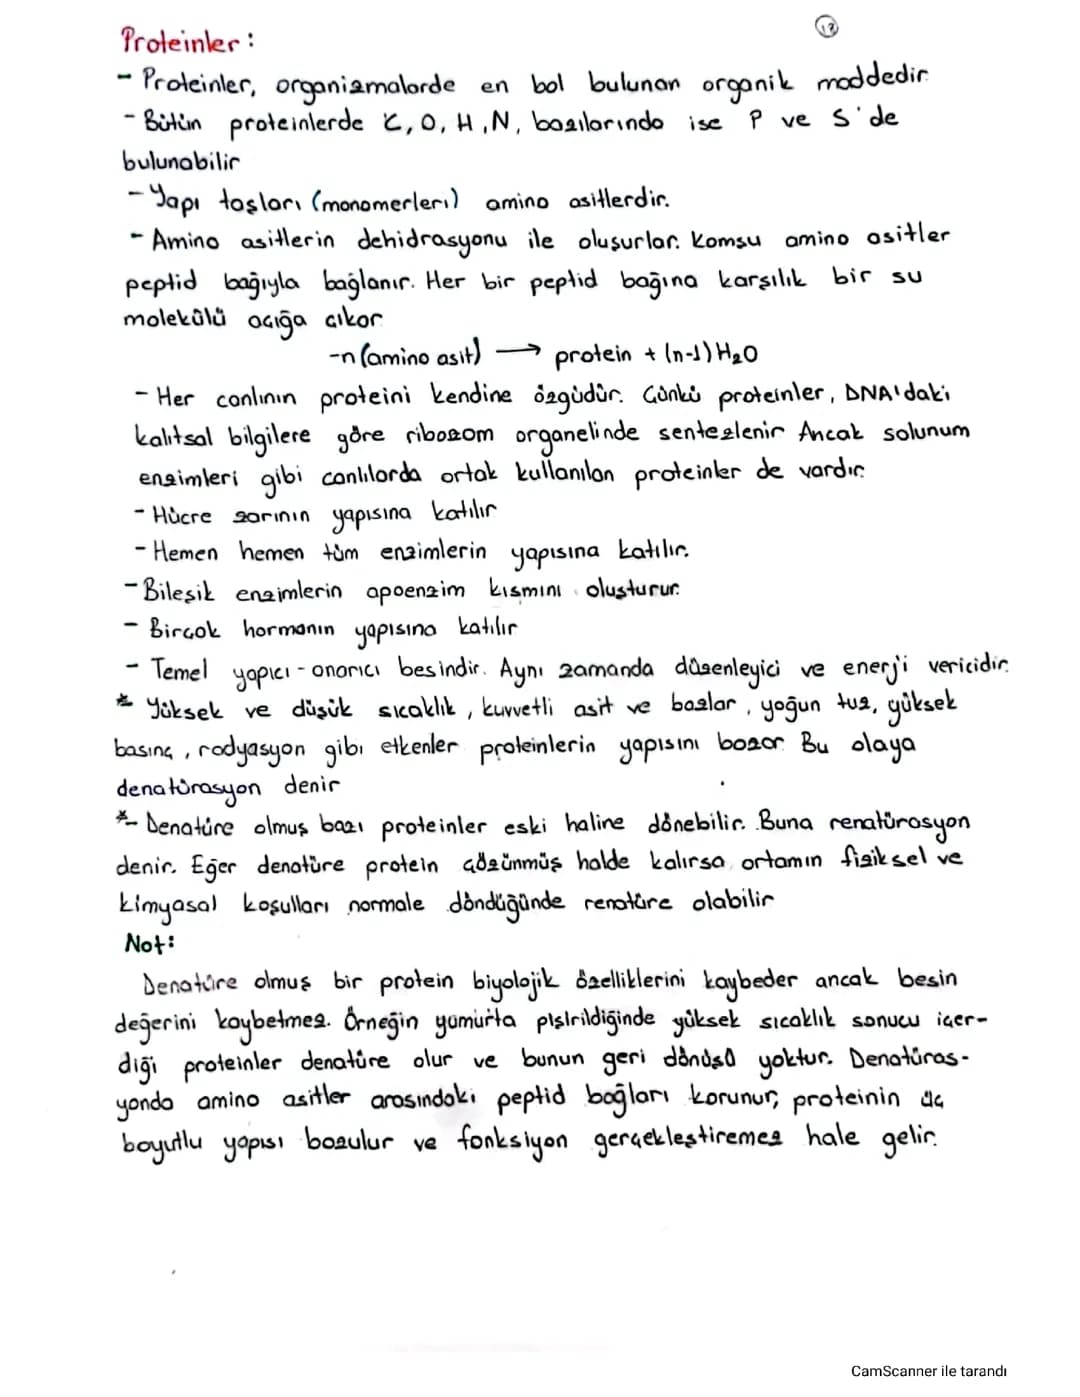 13
Proteinler:
- Proteinler, organizmalarde en bol bulunan organik maddedir.
- Bütün proteinlerde C, O, H, N, bazılarında ise P ve S'de
bulunabilir
- Yapı taşları (monomerleri) amino asitlerdir.
- Amino asitlerin dehidrasyonu ile oluşurlar. Komsu amino asitler
peptid bağıyla bağlanır. Her bir peptid bağına karşılık bir su
molekülü açığa çıkar
-n(amino asit) → protein + (n-1)H₂O
- Her canlının proteini kendine özgüdür. Çünkü proteinler, DNA'daki
kalıtsal bilgilere göre ribozom organelinde sentezlenir Ancak solunum
enzimleri gibi canlılarda ortak kullanılan proteinler de vardır.
- Hücre zarının yapısına katılır
- Hemen hemen tüm enzimlerin yapısına katılır.
- Bileşik enzimlerin apoenzim kısmını oluşturur.
- Birçok hormonın yapısına katılır
- Temel yapıcı - onarıcı besindir. Aynı zamanda düzenleyici ve enerji vericidir.
* Yüksek ve düşük sıcaklık, kuvvetli asit ve bazlar, yoğun tuz, yüksek
basınç, radyasyon gibi etkenler proteinlerin yapısını bozar Bu olaya
denatürasyon denir
*- Denatüre olmuş bazı proteinler eski haline dönebilir. Buna renatürasyon
denir. Eğer denatüre protein çözünmüş halde kalırsa, ortamın fiziksel ve
kimyasal koşulları normale döndüğünde renatüre olabilir
Not:
Denatüre olmuş bir protein biyolojik özelliklerini kaybeder ancak besin
değerini kaybetmez. Örneğin yumurta pişirildiğinde yüksek sıcaklık sonucu içer-
diği proteinler denatüre olur ve bunun geri dönüşü yoktur. Denatüras-
yonda amino asitler arasındaki peptid bağları korunur, proteinin üç
boyutlu yapısı bozulur ve fonksiyon gerçekleştiremez hale gelir.
CamScanner ile tarandı